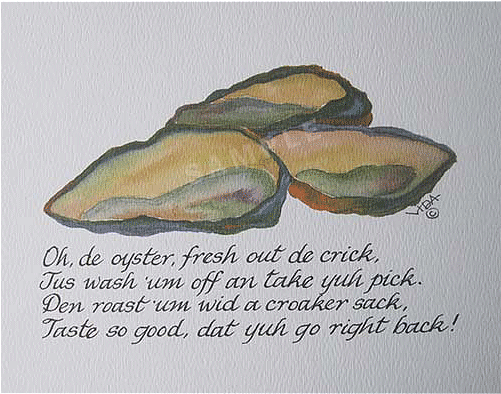 SAMPLE
LIBA ©
Oh, de oyster, fresh out de crick,
Jus wash 'um off an take yuh pick.
Den roast 'um wid a croaker sack,
Taste so good, dat yuh go right back!